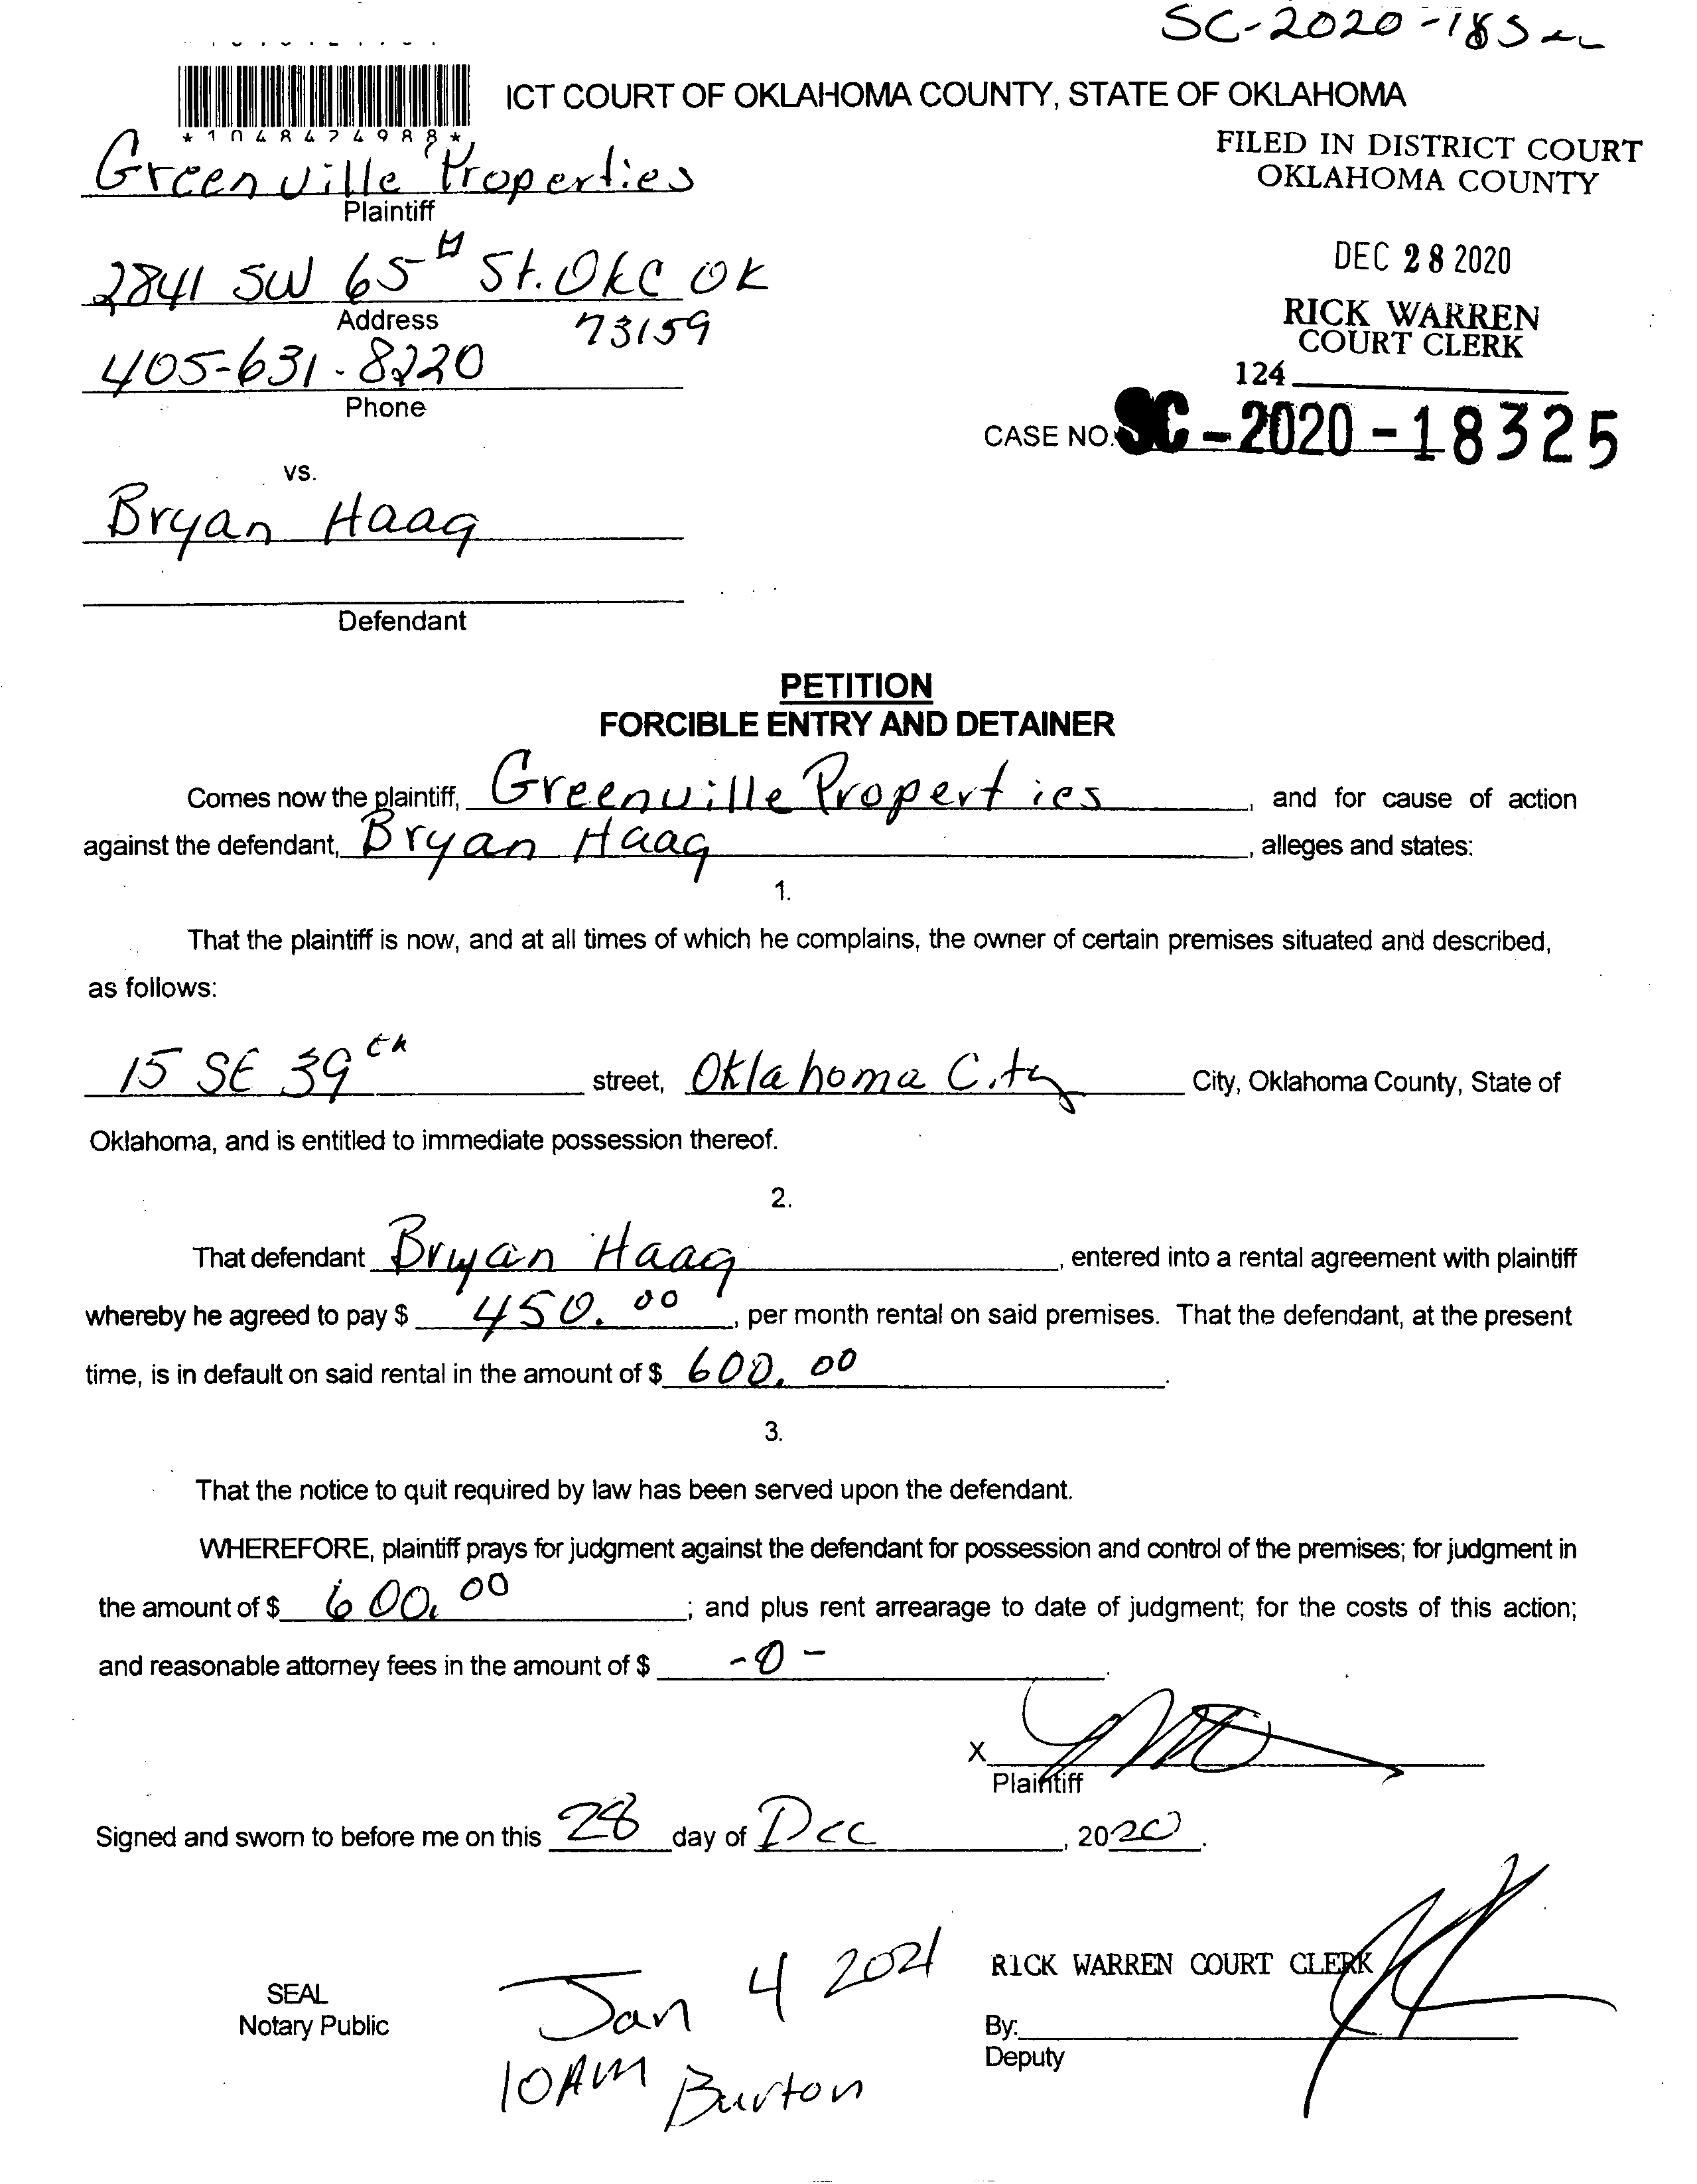 SC-2020-185
ICT COURT OF OKLAHOMA COUNTY, STATE OF OKLAHOMA
*1048474988*
FILED IN DISTRICT COURT
OKLAHOMA COUNTY
Greenville Properties
Plaintiff
DEC 28 2020
2841 SW 65th St. OKC OK
73159
Address
RICK WARREN
COURT CLERK
124
405-631-8220
Phone
CASE NO. SC-2020-18325
vs.
Bryan Haag
Defendant
PETITION
FORCIBLE ENTRY AND DETAINER
Comes now the plaintiff, Greenville Properties, and for cause of action
against the defendant, Bryan Haag, alleges and states:
1.
That the plaintiff is now, and at all times of which he complains, the owner of certain premises situated and described,
as follows:
15 SE 39th street, Oklahoma City City, Oklahoma County, State of
Oklahoma, and is entitled to immediate possession thereof.
2.
That defendant Bryan Haag, entered into a rental agreement with plaintiff
whereby he agreed to pay $ 450.00, per month rental on said premises. That the defendant, at the present
time, is in default on said rental in the amount of $ 600.00.
3.
That the notice to quit required by law has been served upon the defendant.
WHEREFORE, plaintiff prays for judgment against the defendant for possession and control of the premises; for judgment in
the amount of $ 600.00; and plus rent arrearage to date of judgment; for the costs of this action;
and reasonable attorney fees in the amount of $ -0-.
X
Plaintiff
Signed and sworn to before me on this 28 day of Dec, 2020.
SEAL
Notary Public
Jan 4 2021
10AM Burton
RICK WARREN COURT CLERK
By:
Deputy